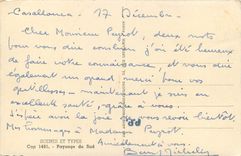 Casablanca - 17 Décembre -
Cher Monsieur Puyot, deux mots
pour vous dire combien j'ai été heureux
de faire votre connaissance, et vous dire
également un grand merci pour vos
maintenant je suis en
excellente santé, grâce à vous.
J'espère avoir la joie de vous revoir bientôt.
Mes hommages à Madame Puyot.
Amicalement à vous.
SCENES ET TYPES
Cop 1481. - Paysage du Sud